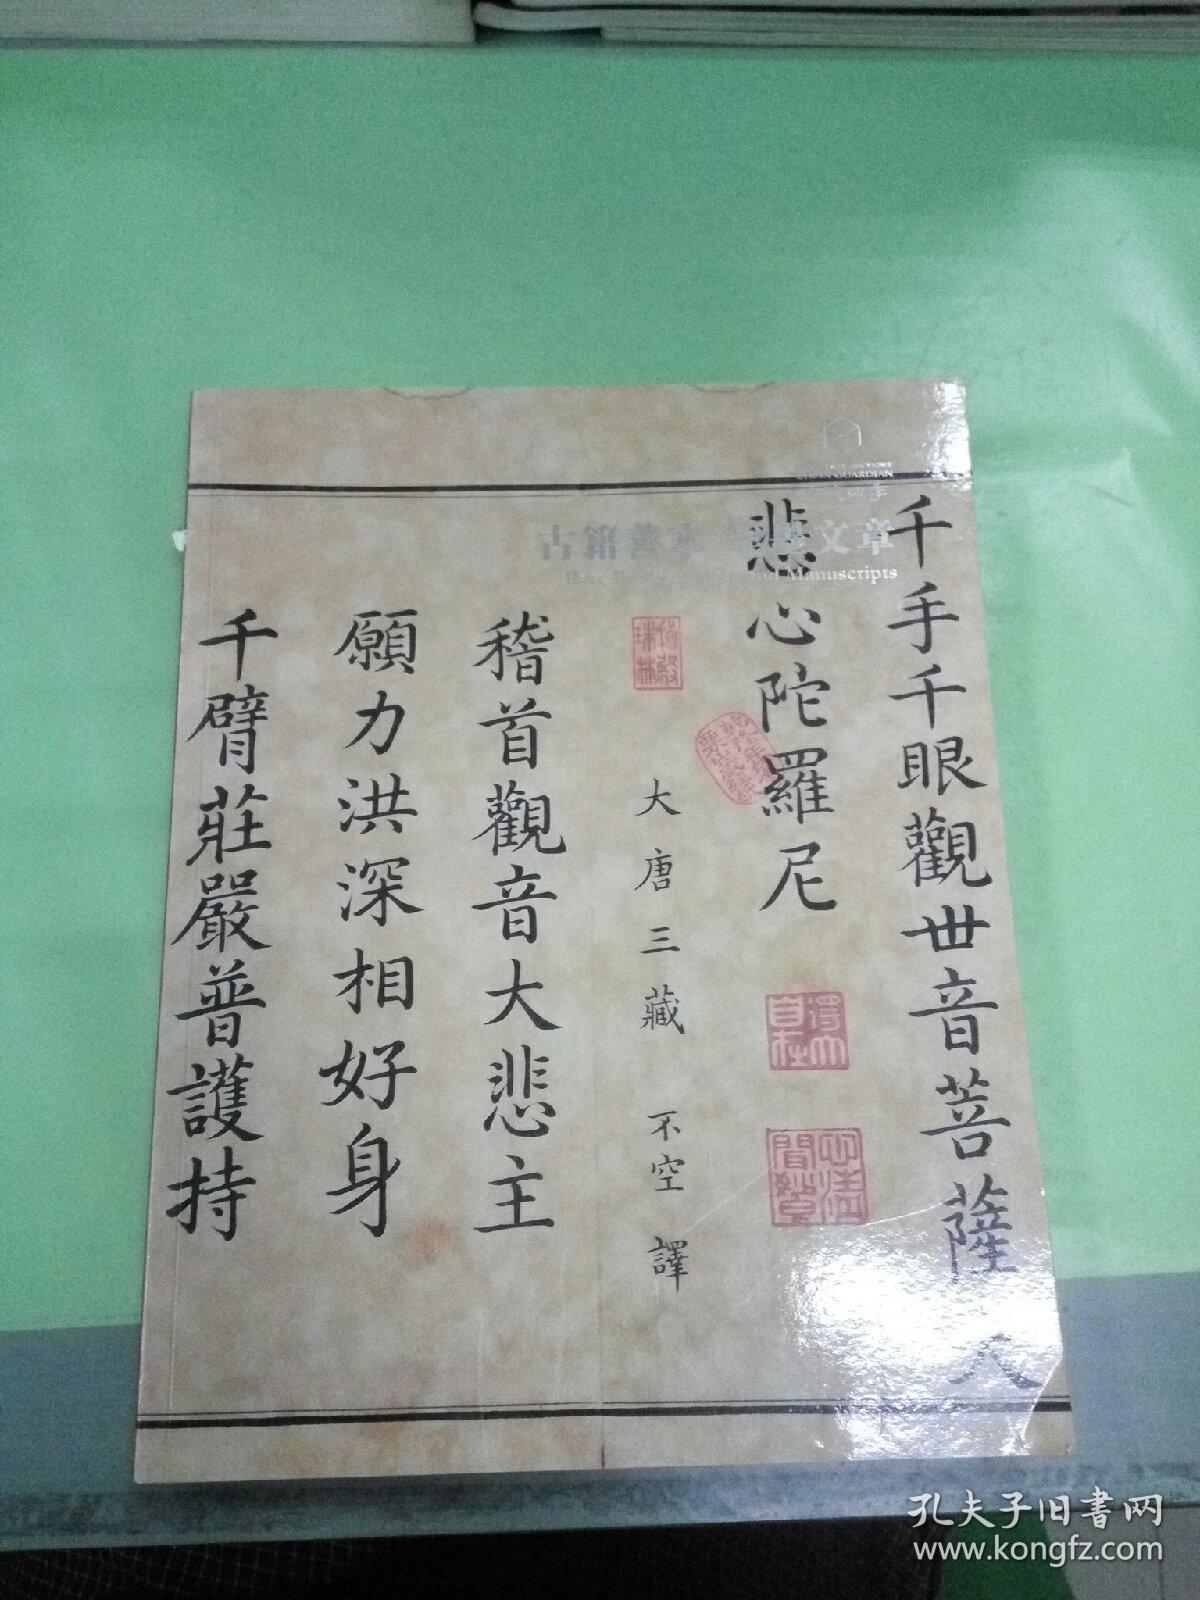 千手千眼觀世音菩薩大
悲心陀羅尼
大唐三藏 不空 譯
稽首觀音大悲主
願力洪深相好身
千臂莊嚴普護持
GUARDIAN
文章
Manuscripts
孔夫子旧书网
www.kongfz.com